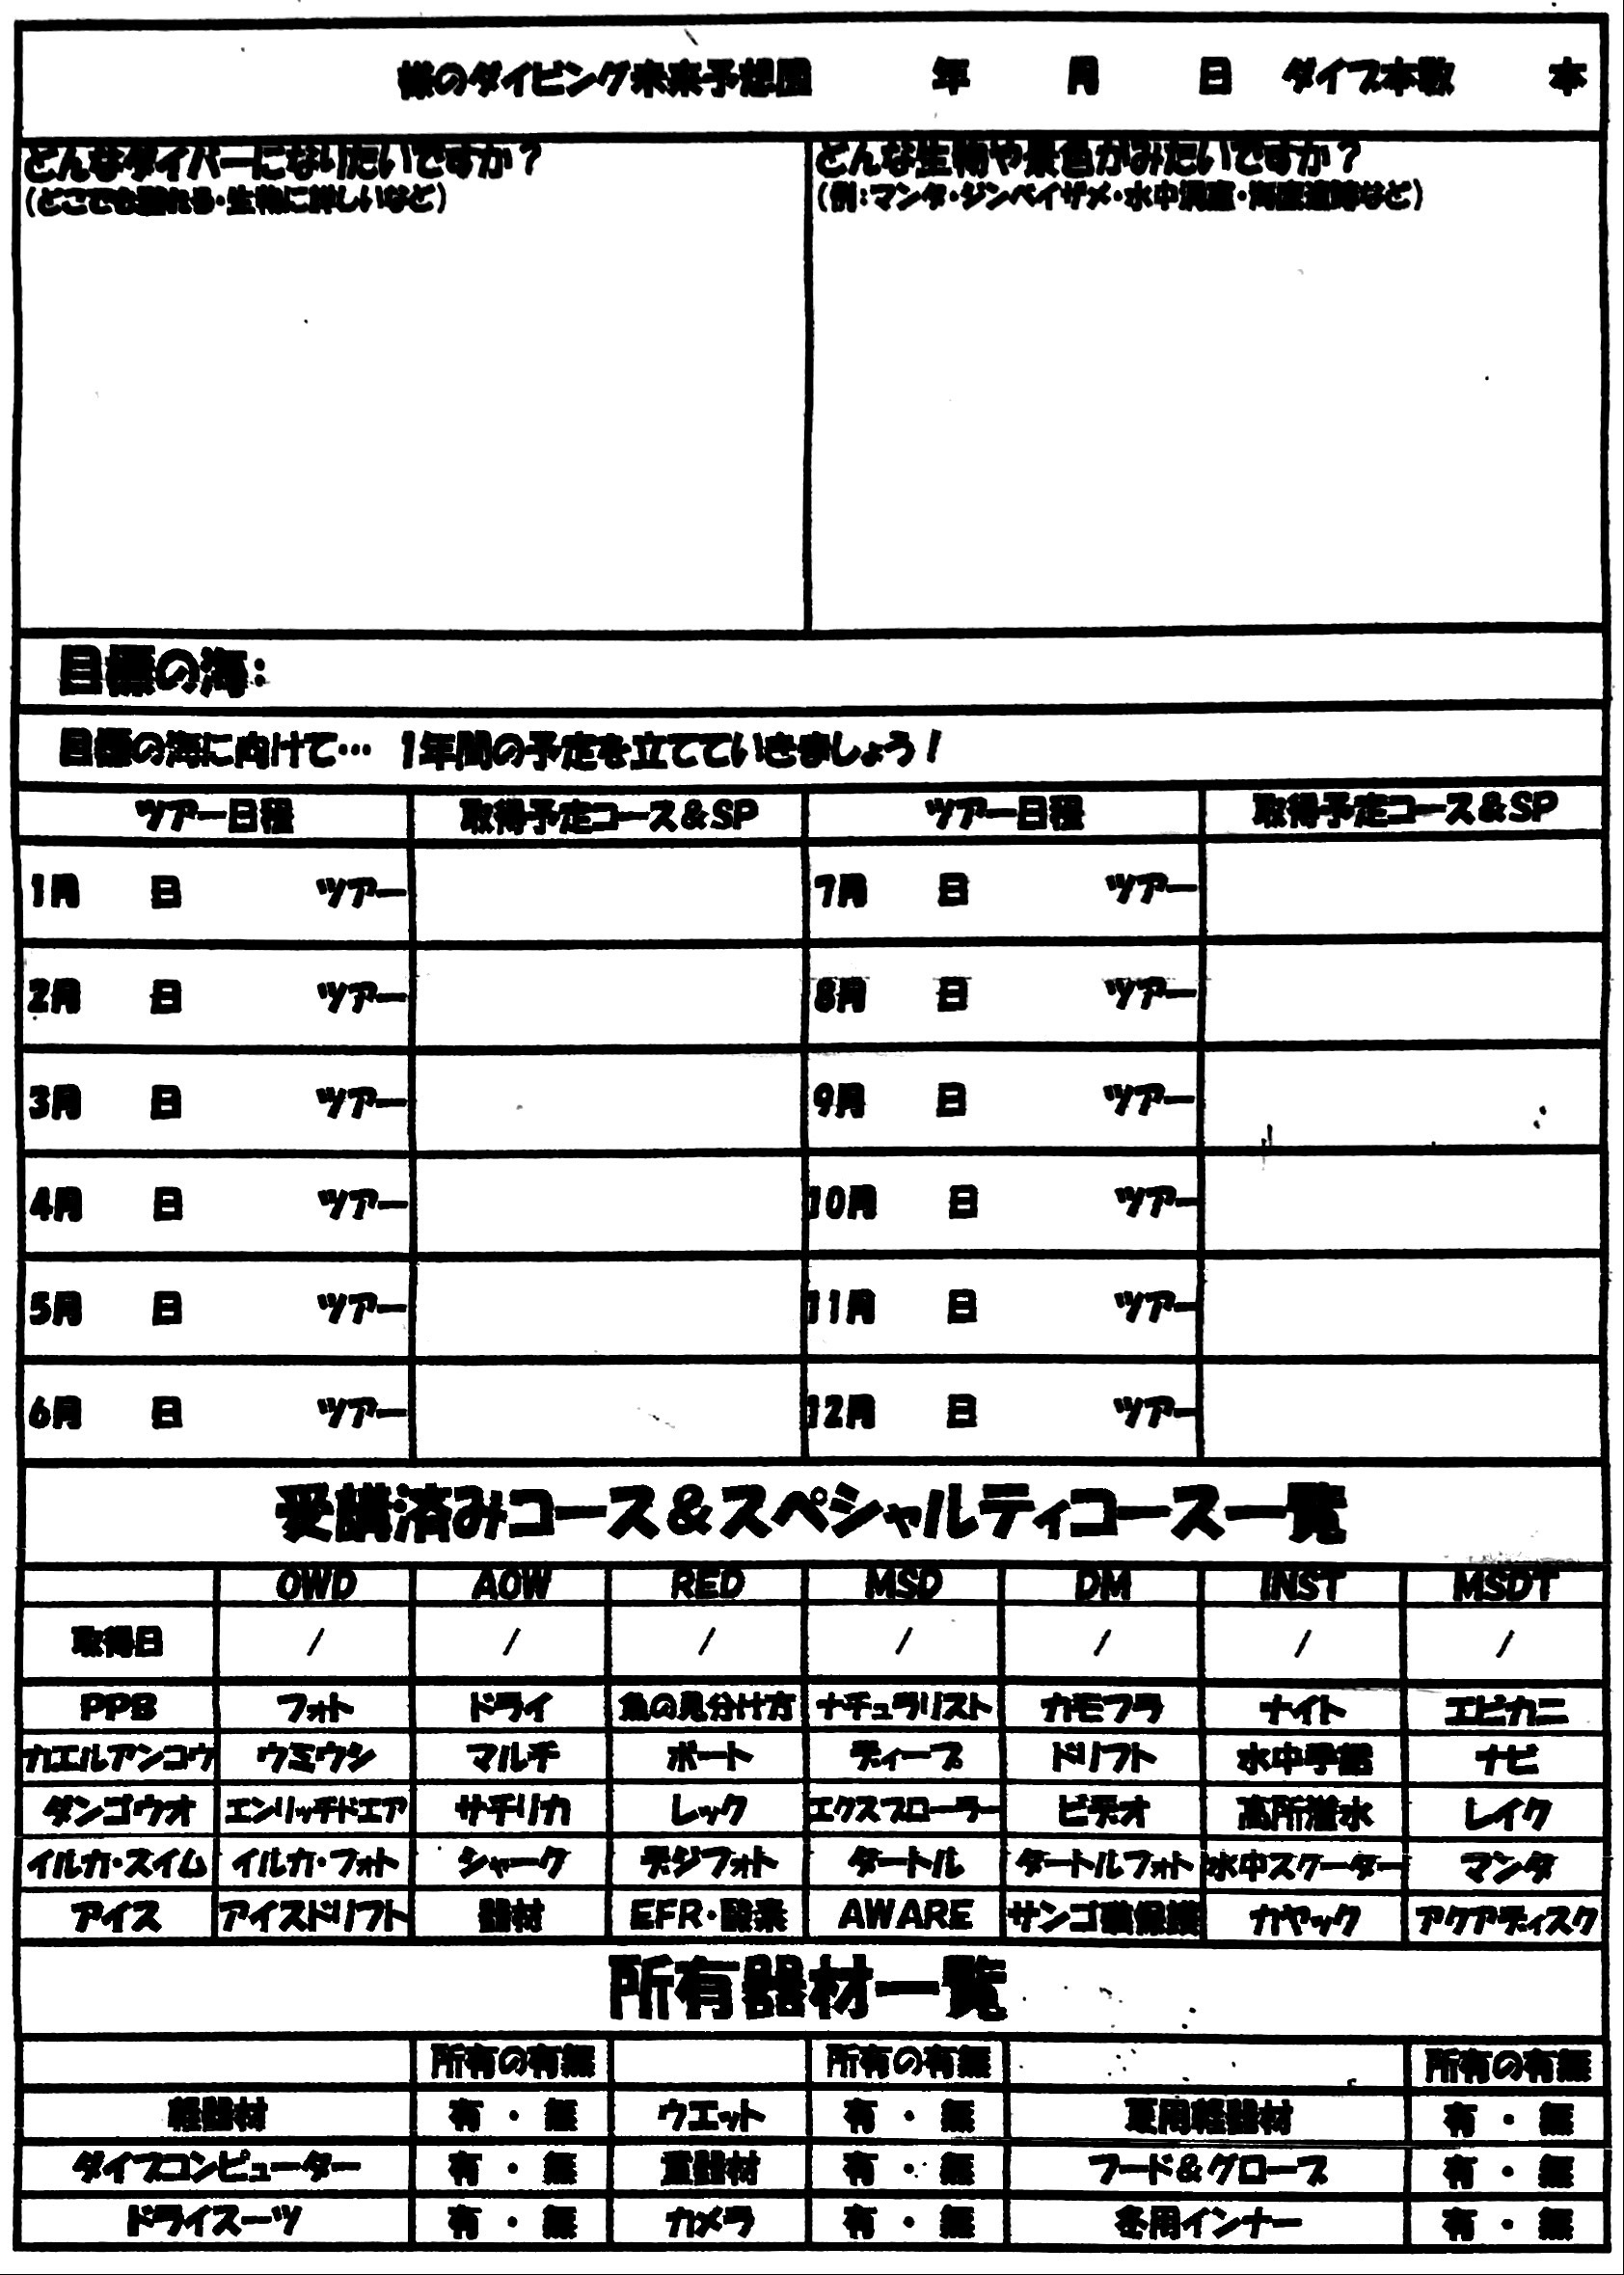 様のダイビング未来予想図 年 月 日 ダイブ本数 本
どんなダイバーになりたいですか？ どんな生物や景色がみたいですか？
（どこでも潜れる・生物に詳しいなど） （例：マンタ・ジンベイザメ・水中洞窟・海底遺跡など）
目標の海：
目標の海に向けて… 1年間の予定を立てていきましょう！
ツアー日程 取得予定コース＆SP ツアー日程 取得予定コース＆SP
1月 日 ツアー 7月 日 ツアー
2月 日 ツアー 8月 日 ツアー
3月 日 ツアー 9月 日 ツアー
4月 日 ツアー 10月 日 ツアー
5月 日 ツアー 11月 日 ツアー
6月 日 ツアー 12月 日 ツアー
受講済みコース＆スペシャルティコース一覧
OWD AOW RED MSD DM INST MSDT
取得日 / / / / / / /
PPB フォト ドライ 魚の見分け方 ナチュラリスト カモフラ ナイト エビカニ
カエルアンコウ ウミウシ マルチ ボート ディープ ドリフト 水中手話 ナビ
ダンゴウオ エンリッチドエア サチリカ レック エクスプローラー ビデオ 高所潜水 レイク
イルカ・スイム イルカ・フォト シャーク デジフォト タートル タートルフォト 水中スクーター マンタ
アイス アイスドリフト 器材 EFR・酸素 AWARE サンゴ礁保護 カヤック アクアティスク
所有器材一覧
所有の有無 所有の有無 所有の有無
軽器材 有 ・ 無 ウエット 有 ・ 無 夏用軽器材 有 ・ 無
ダイブコンピューター 有 ・ 無 重器材 有 ・ 無 フード＆グローブ 有 ・ 無
ドライスーツ 有 ・ 無 カメラ 有 ・ 無 冬用インナー 有 ・ 無